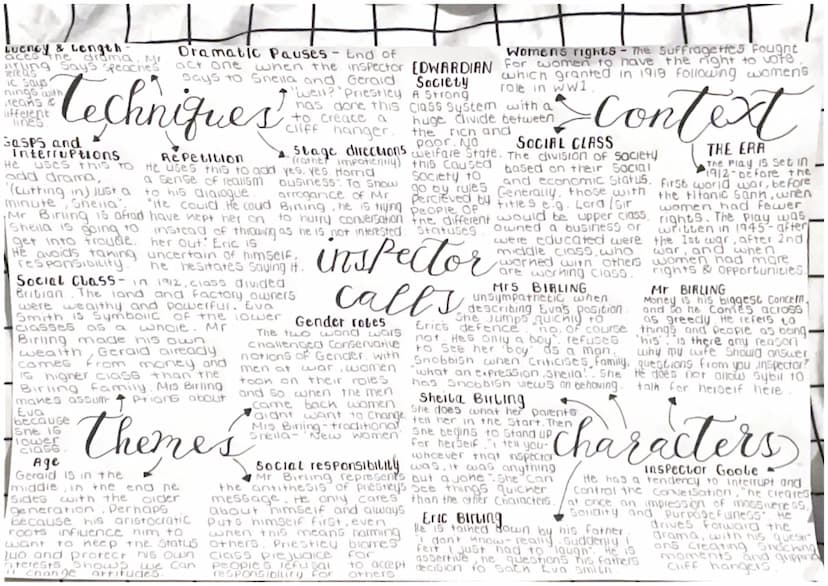 Fluency & Length-
Dramatic Pauses - End of
act one when the inspector
says to Sheila and Gerald
'well?' Priestley
has done this
to create a
cliff hanger.
Techniques
Gasps and
interruptions
He uses this to
add drama,
'(Cutting in) Just a
minute, Sheila'.
Mr Birling is afraid
Sheila is going to
get into trouble.
He avoids taking
responsibility.
Repetition
He uses this to add
a sense of realism
to his dialogue
'He could He could
have kept her on
instead of throwing
her out' Eric is
uncertain of himself,
he hesitates saying it.
Stage directions
(rather impatiently)
yes, yes. Horrid
business'. To show
arrogance of Mr
Birling, he is trying
to hurry conversation
as he is not interested
EDWARDIAN
Society
A strong
class system with a
huge divide between
the rich and
poor. No
welfare state.
this caused
society to
go by rules
percieved by
people of
the different
statuses.
Womens rights - The suffragettes fought
for women to have the right to vote.
which granted in 1918 following womens
role in WW1.
context
SOCIAL CLASS
The division of society
based on their social
and economic status.
Generally, those with
titles e.g. Lord/Sir
would be upper class.
owned a business or
were educated were
middle class, who
worked with others
are working class.
THE ERA
The play is set in
1912-before the
first world war, before
the titanic sank, when
women had fewer
rights. The play was
written in 1945-after
the 1st war, after 2nd
war, and when
women had more
rights & opportunities.
inspector
calls
Social Class- in 1912, class divided
Britian. The land and factory owners
were wealthy and powerful. Eva
Smith is symbolic of the lower
classes as a whole. Mr
Birling made his own
wealth, Gerald already
comes from money and
is higher class than the
Birling family. Mrs Birling
makes assumptions about
Eva
because
she is
lower
class.
Gender roles
The two world wars
challenged conservative
notions of Gender. with
men at war, women
took on their roles
and so when the men
came back women
didnt want to change.
Mrs Birling-traditional
Sheila-'New women'
Themes
Age
Gerald is in the
middle, in the end he
sides with the older
generation. Perhaps
because his aristocratic
roots influence him to
want to keep the status
quo and protect his own
interests. Shows we can
change attitudes.
Social responsibility
Mr Birling represents
the antithesis of priestleys
message. He only cares
about himself and always
puts himself first, even
when this means harming
others. Priestley blames
class prejudice for
peoples refusal to accept
responsibility for others
Mrs BIRLING
unsympathetic when
describing Eva's position.
She jumps quickly to
Erics defence 'no, of course
not. He's only a boy'. refuses
to see her 'boy' as a man.
Snobbish when criticises family,
'what an expression, Sheila'. She
has snobbish views on behaving.
Mr BIRLING
Money is his biggest concern,
and so he comes across
as greedy. He refers to
things and people as being
'his'. 'is there any reason
why my wife should answer
questions from you, inspector?'
He does not allow Sybil to
talk for herself here.
Sheila Birling
She does what her parents
tell her in the start. Then
she begins to stand up
for herself. 'I tell you-
whoever that inspector
was, it was anything
but a joke'. She can
see things quicker
than the other characters.
characters
Eric Birling
He is tained down by his father
'I don't know - really. Suddenly I
felt I just had to laugh'. He is
assertive, he questions his fathers
decision to sack Eva Smith.
Inspector Goole
He has a tendency to interrupt and
control the conversation, 'he creates
at once an impression of massiveness,
solidity and purposefulness'. He
drives forward the
drama, with his questi-
ons creating shocking
moments and
cliff hangers.